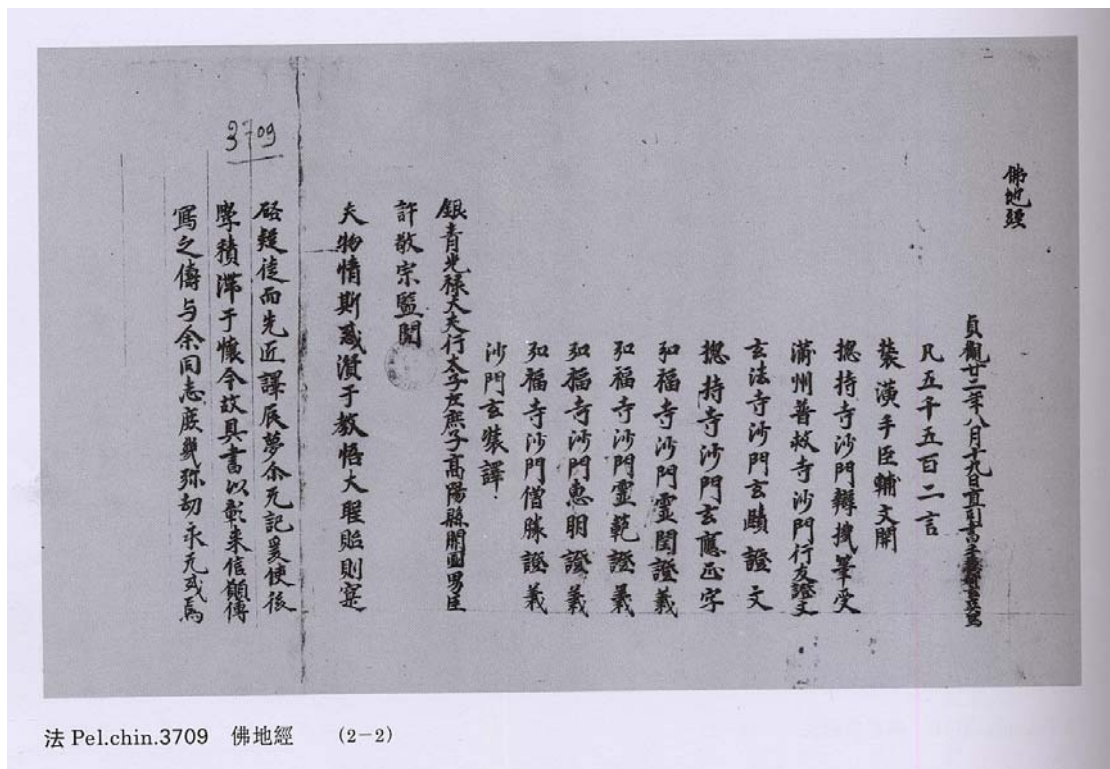 佛地經
貞觀廿二年八月十九日直司書手臣寫
凡五千五百二言
裝潢手臣輔文開
揔持寺沙門辯機筆受
蒲州普救寺沙門行友證文
玄法寺沙門玄賾證文
揔持寺沙門玄應正字
弘福寺沙門靈閏證義
弘福寺沙門靈範證義
弘福寺沙門惠明證義
弘福寺沙門僧勝證義
沙門玄奘譯
銀青光祿大夫行太子左庶子高陽縣開國男臣
許敬宗監閱
夫物情斯惑資于教悟大聖貽則寔
啓疑徒而先匠譯辰夢尒无記爰使後
學積滯于懷今故具書以彰來信願傳
寫之儔与余同志庶幾弥劫永无或焉
3709
法 Pel.chin.3709 佛地經 (2-2)